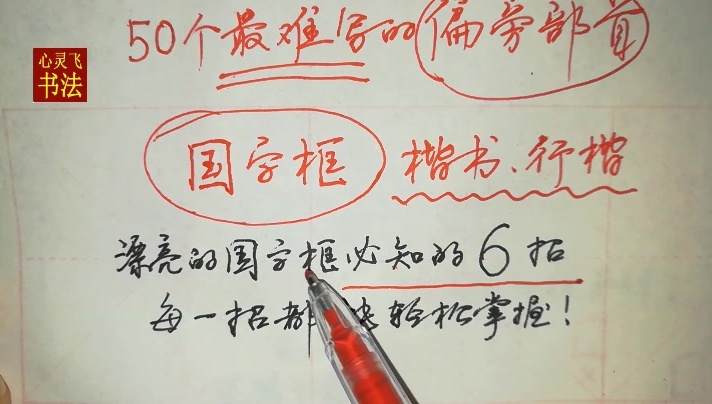 心灵飞
书法
50个最难写的偏旁部首
国字框 楷书、行楷
漂亮的国字框必知的6招
每一招都 轻松掌握!